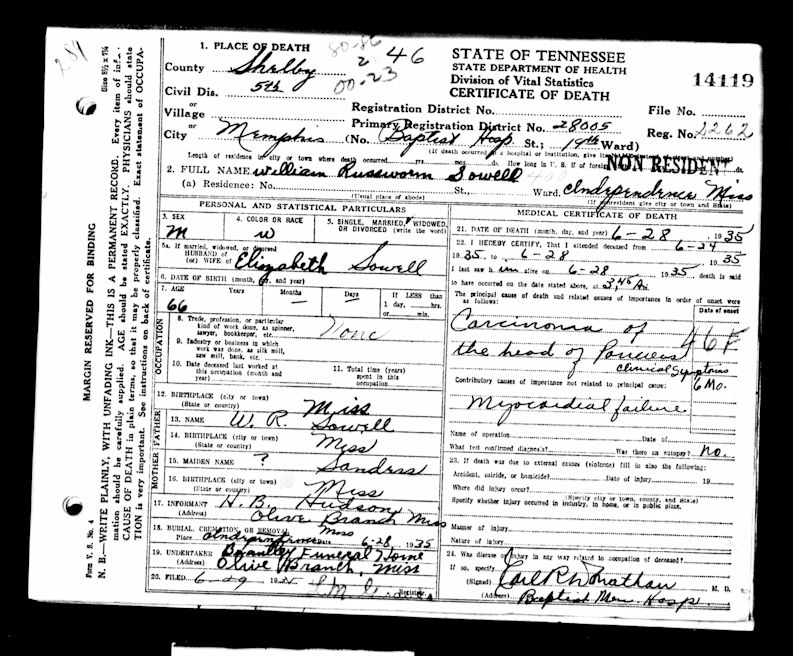 284
80-86
2 46
00-23
1. PLACE OF DEATH
County Shelby
Civil Dis. 5th
or
Village
or
City Memphis (No. Baptist Hosp St.; 19th Ward)
STATE OF TENNESSEE
STATE DEPARTMENT OF HEALTH
Division of Vital Statistics
CERTIFICATE OF DEATH
14119
Registration District No.
File No.
Primary Registration District No. 28005
Reg. No. 2262
(If death occurred in a hospital or institution, give its
NON RESIDENT
Length of residence in city or town where death occurred yrs. mos. ds. How long in U. S. if of foreign
2. FULL NAME William Russworm Sowell
(a) Residence: No. St., Ward. Independence Miss
(Usual place of abode) (If nonresident give city or town and State)
PERSONAL AND STATISTICAL PARTICULARS
3. SEX M
4. COLOR OR RACE W
5. SINGLE, MARRIED, WIDOWED, OR DIVORCED (write the word)
5a. If married, widowed, or divorced
HUSBAND OF
(or) WIFE OF Elizabeth Sowell
6. DATE OF BIRTH (month, day, and year)
7. AGE Years Months Days If LESS than
1 day, hrs.
or min.
66
OCCUPATION
8. Trade, profession, or particular
kind of work done, as spinner,
sawyer, bookkeeper, etc. None
9. Industry or business in which
work was done, as silk mill,
saw mill, bank, etc.
10. Date deceased last worked at
this occupation (month and
year)
11. Total time (years)
spent in this
occupation
12. BIRTHPLACE (city or town)
(State or country) Miss
FATHER
13. NAME W. R. Sowell
14. BIRTHPLACE (city or town)
(State or country) Miss
MOTHER
15. MAIDEN NAME ? Sanders
16. BIRTHPLACE (city or town)
(State or country) Miss
17. INFORMANT H. B. Hudson
(Address) Olive Branch Miss
18. BURIAL, CREMATION, OR REMOVAL Miss
Place Independence Date 6-28 1935
19. UNDERTAKER Brantley Funeral Home
(Address) Olive Branch, Miss
20. FILED 6-29 19
Registrar
MEDICAL CERTIFICATE OF DEATH
21. DATE OF DEATH (month, day, and year) 6-28 1935
22. I HEREBY CERTIFY, That I attended deceased from 6-24
1935, to 6-28 1935
I last saw him alive on 6-28 1935, death is said
to have occurred on the date stated above, at 3:45 A m.
The principal cause of death and related causes of importance in order of onset were
as follows: Date of onset
Carcinoma of
the head of Pancreas
46F
Clinical Symptoms
6 Mo.
Contributory causes of importance not related to principal cause:
Myocardial failure
Name of operation Date of
What test confirmed diagnosis? Was there an autopsy? no.
23. If death was due to external causes (violence) fill in also the following:
Accident, suicide, or homicide? Date of injury 19
Where did injury occur?
(Specify city or town, county, and State)
Specify whether injury occurred in industry, in home, or in public place.
Manner of injury
Nature of injury
24. Was disease or injury in any way related to occupation of deceased?
If so, specify
(Signed) M. D.
(Address) Baptist Mem. Hosp.
MARGIN RESERVED FOR BINDING
Size 8½ x 7¼
N. B.—WRITE PLAINLY, WITH UNFADING INK—THIS IS A PERMANENT RECORD. Every item of infor-
mation should be carefully supplied. AGE should be stated EXACTLY. PHYSICIANS should state
CAUSE OF DEATH in plain terms, so that it may be properly classified. Exact statement of OCCUPA-
TION is very important. See instructions on back of certificate.
Form V. S. No. 4